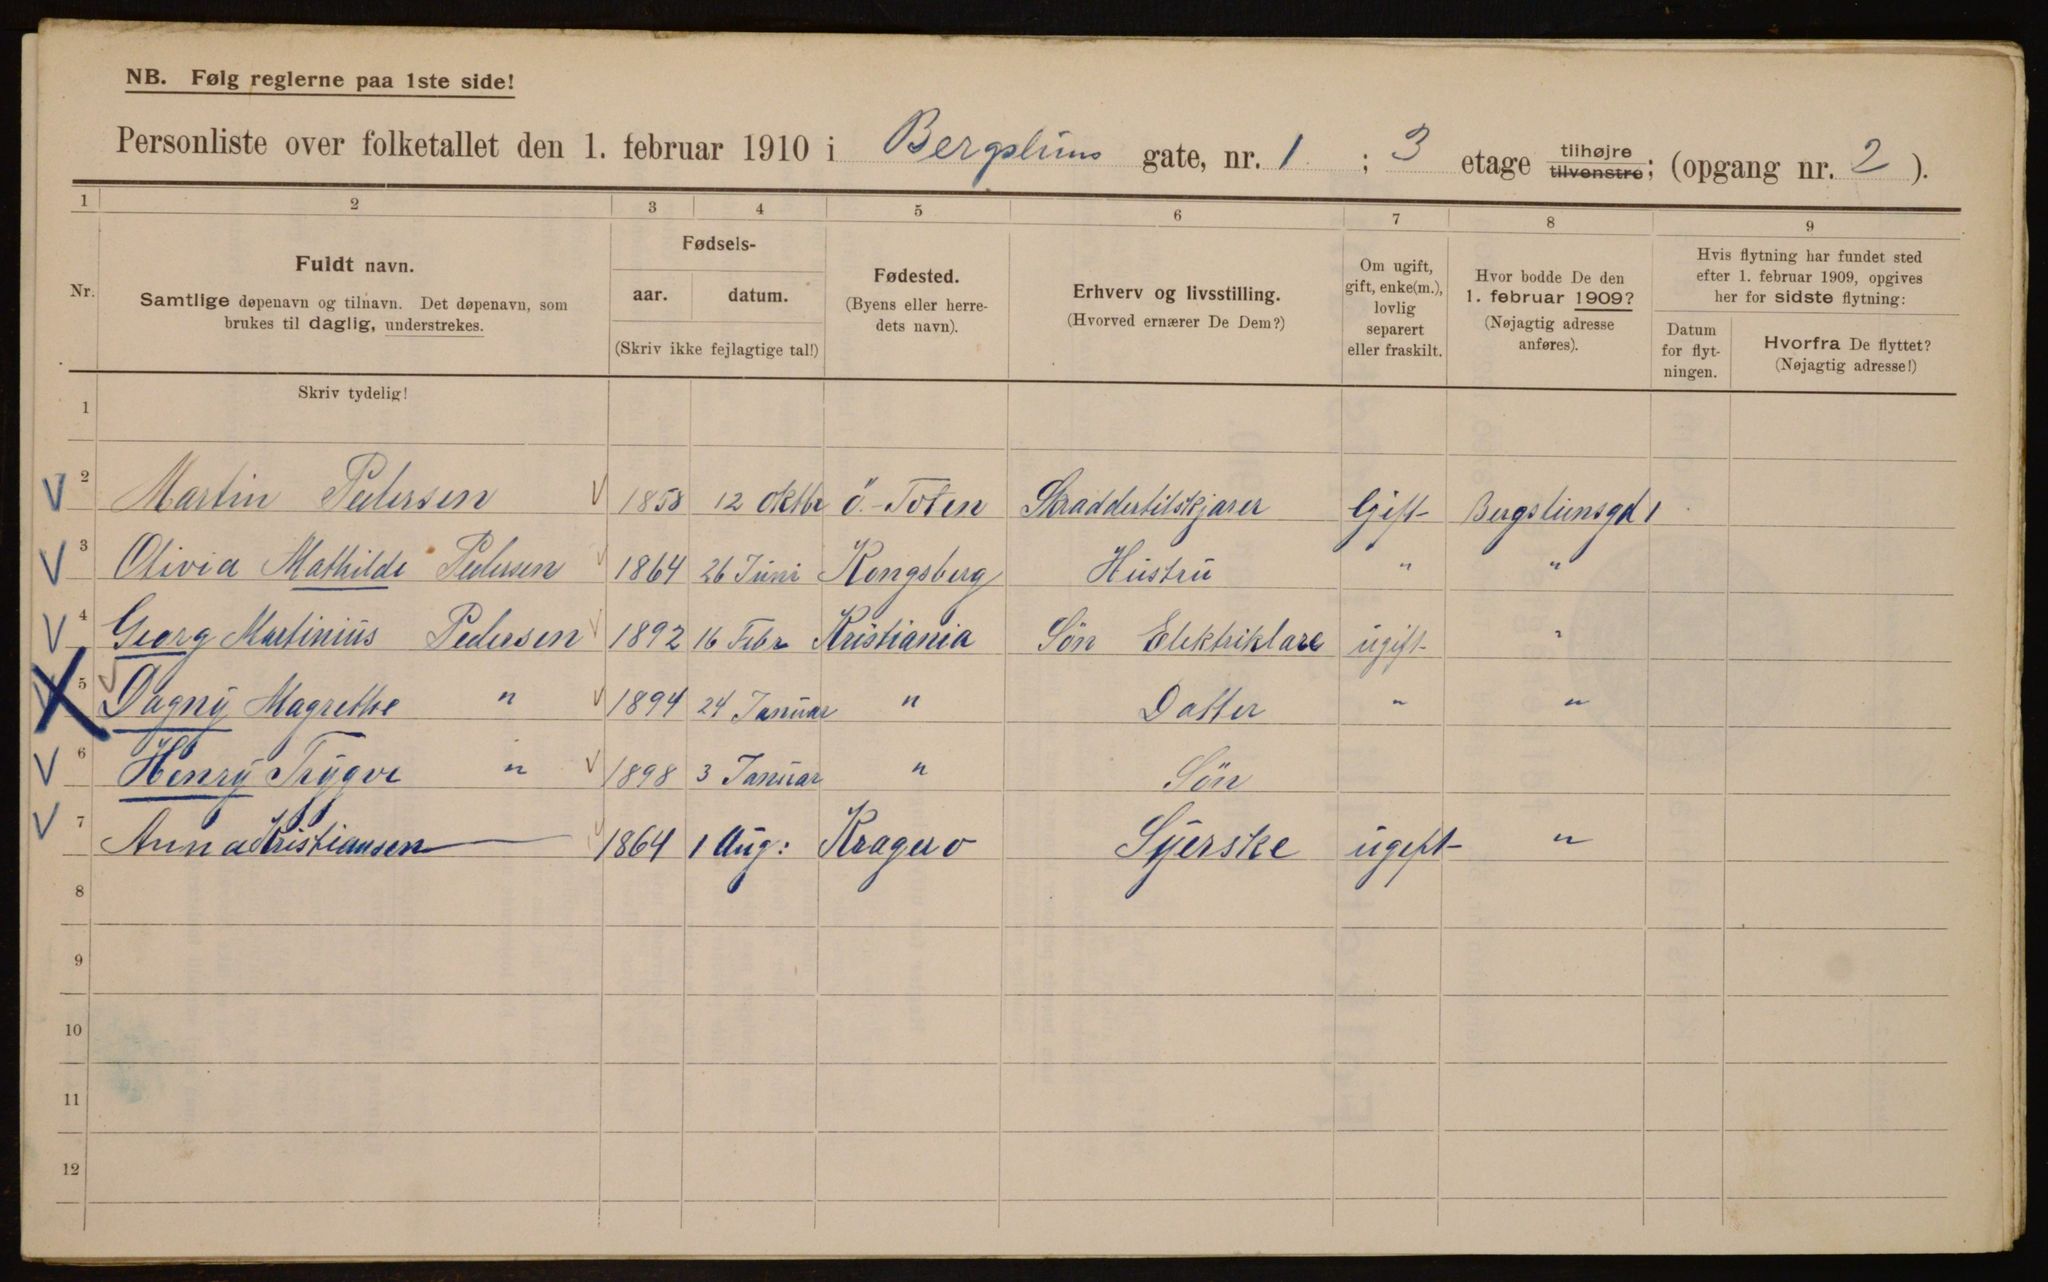 NB. Følg reglerne paa 1ste side!
Personliste over folketallet den 1. februar 1910 i Bergsliens gate, nr. 1 ; 3 etage tilhøjre tilvenstre; (opgang nr. 2 ).
1 2 3 4 5 6 7 8 9
Nr.
Fuldt navn.
Samtlige døpenavn og tilnavn. Det døpenavn, som
brukes til daglig, understrekes.
Fødsels-
aar. datum.
(Skriv ikke fejlagtige tal!)
Fødested.
(Byens eller herre-
dets navn).
Erhverv og livsstilling.
(Hvorved ernærer De Dem?)
Om ugift,
gift, enke(m.),
lovlig
separert
eller fraskilt.
Hvor bodde De den
1. februar 1909?
(Nøjagtig adresse
anføres).
Hvis flytning har fundet sted
efter 1. februar 1909, opgives
her for sidste flytning:
Datum
for flyt-
ningen.
Hvorfra De flyttet?
(Nøjagtig adresse!)
Skriv tydelig!
1
2 Martin Pedersen 1858 12 oktbr Ö.-Toten Skraddertilskjærer Gift Bergsliensgd 1
3 Olivia Mathilde Pedersen 1864 26 Juni Kongsberg Hustru " "
4 Georg Martinius Pedersen 1892 16 Febr Kristiania Sön Elektriklære ugift "
5 Dagny Magrethe " 1894 24 Januar " Datter " "
6 Henry Trygve " 1898 3 Januar " Sön
7 Anna Kristiansen 1864 1 Aug: Kragerø Syerske ugift "
8
9
10
11
12